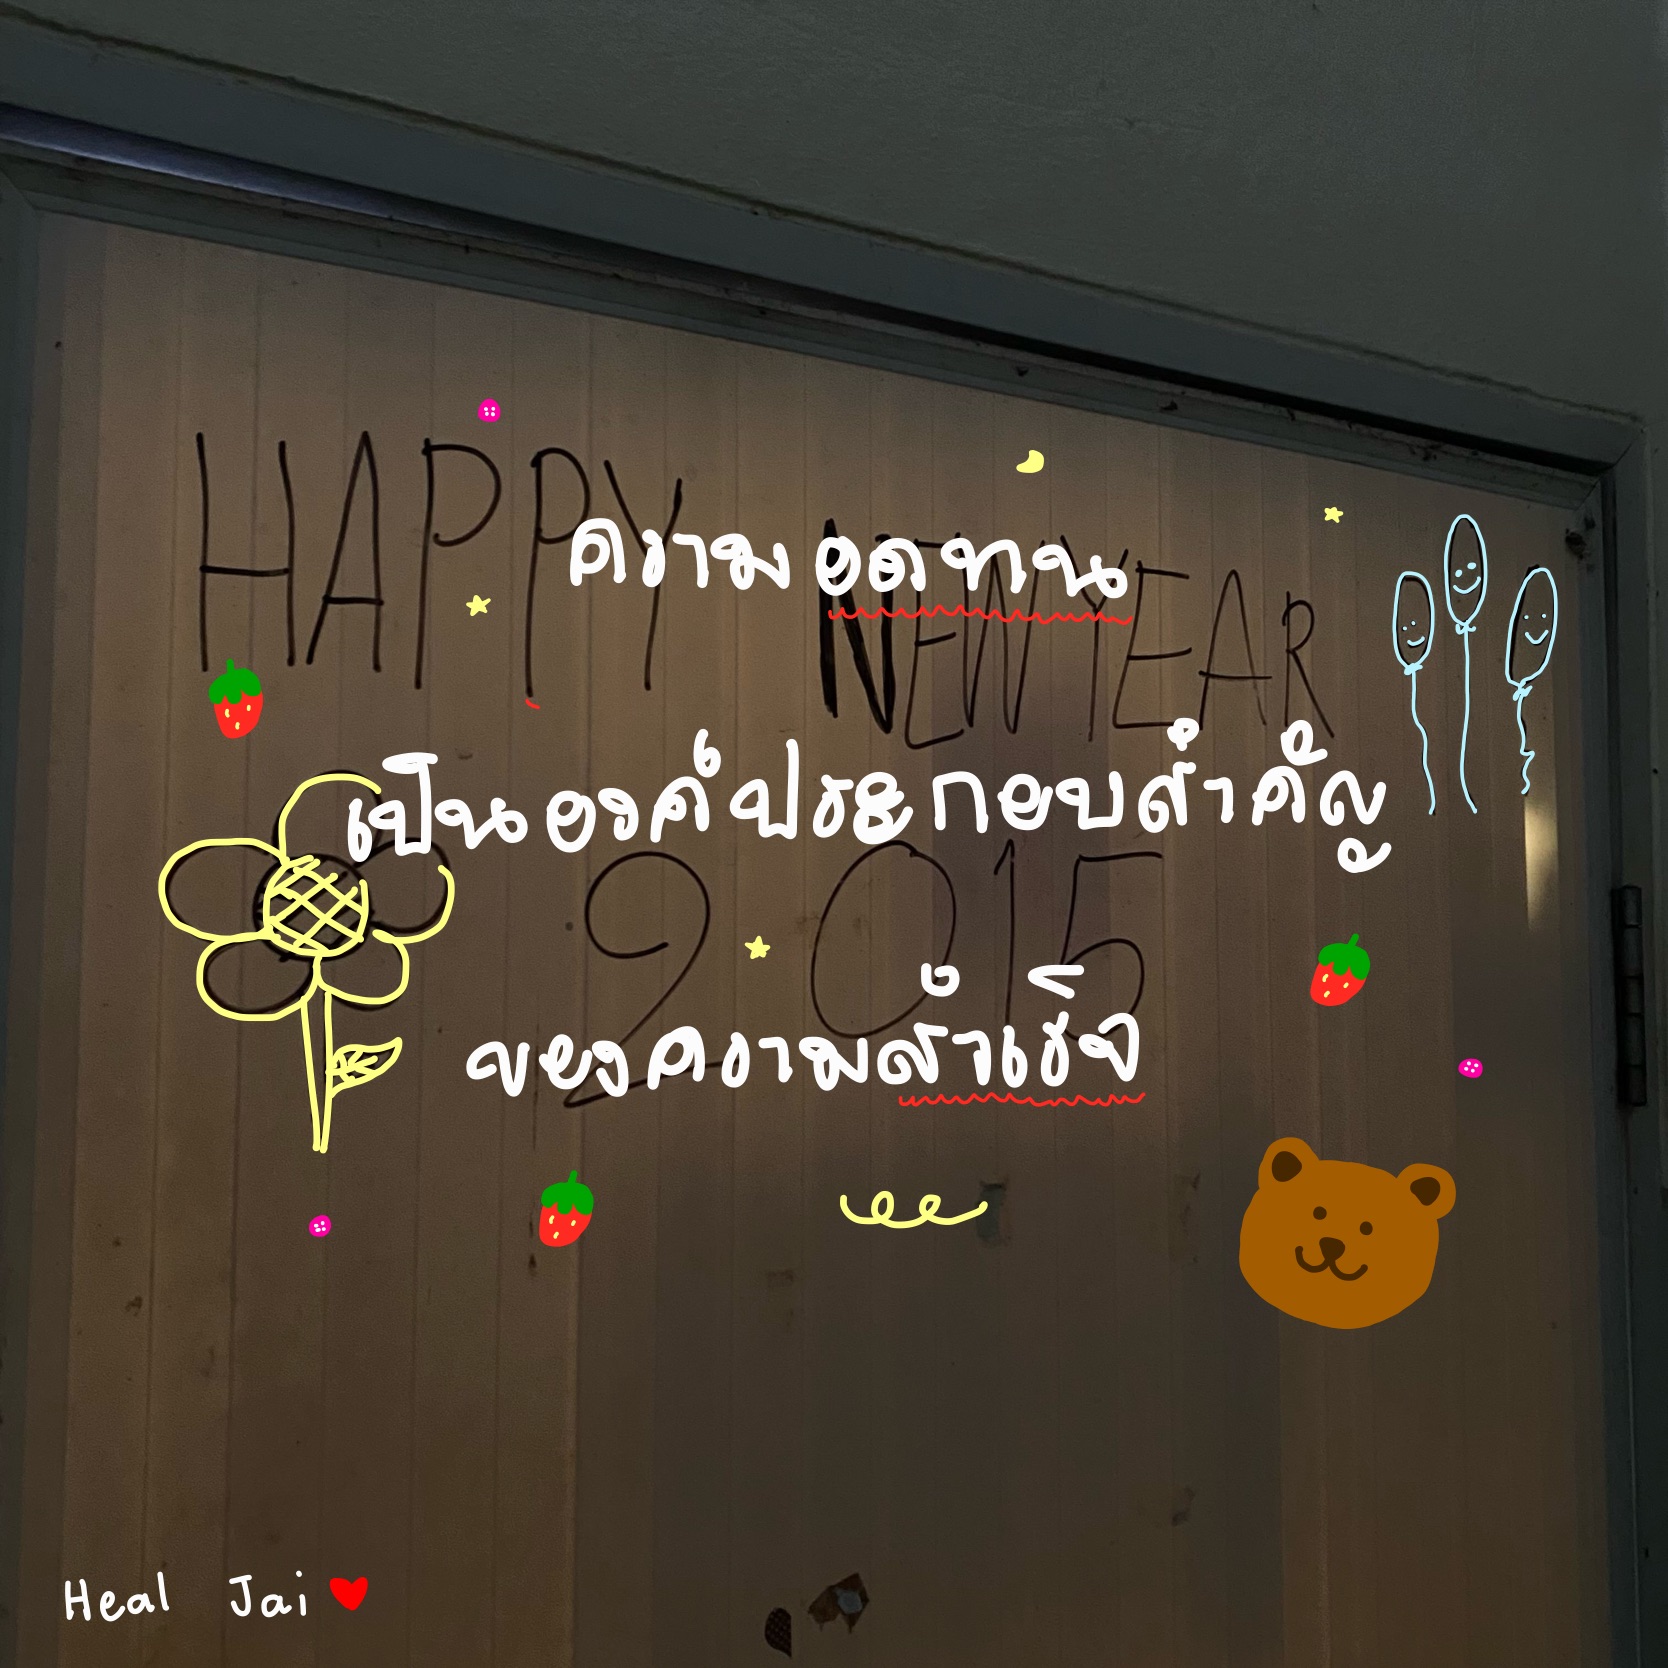 HAPPY NEW YEAR
ความอดทน
เป็นองค์ประกอบสำคัญ
2015
ของความสำเร็จ
Heal Jai